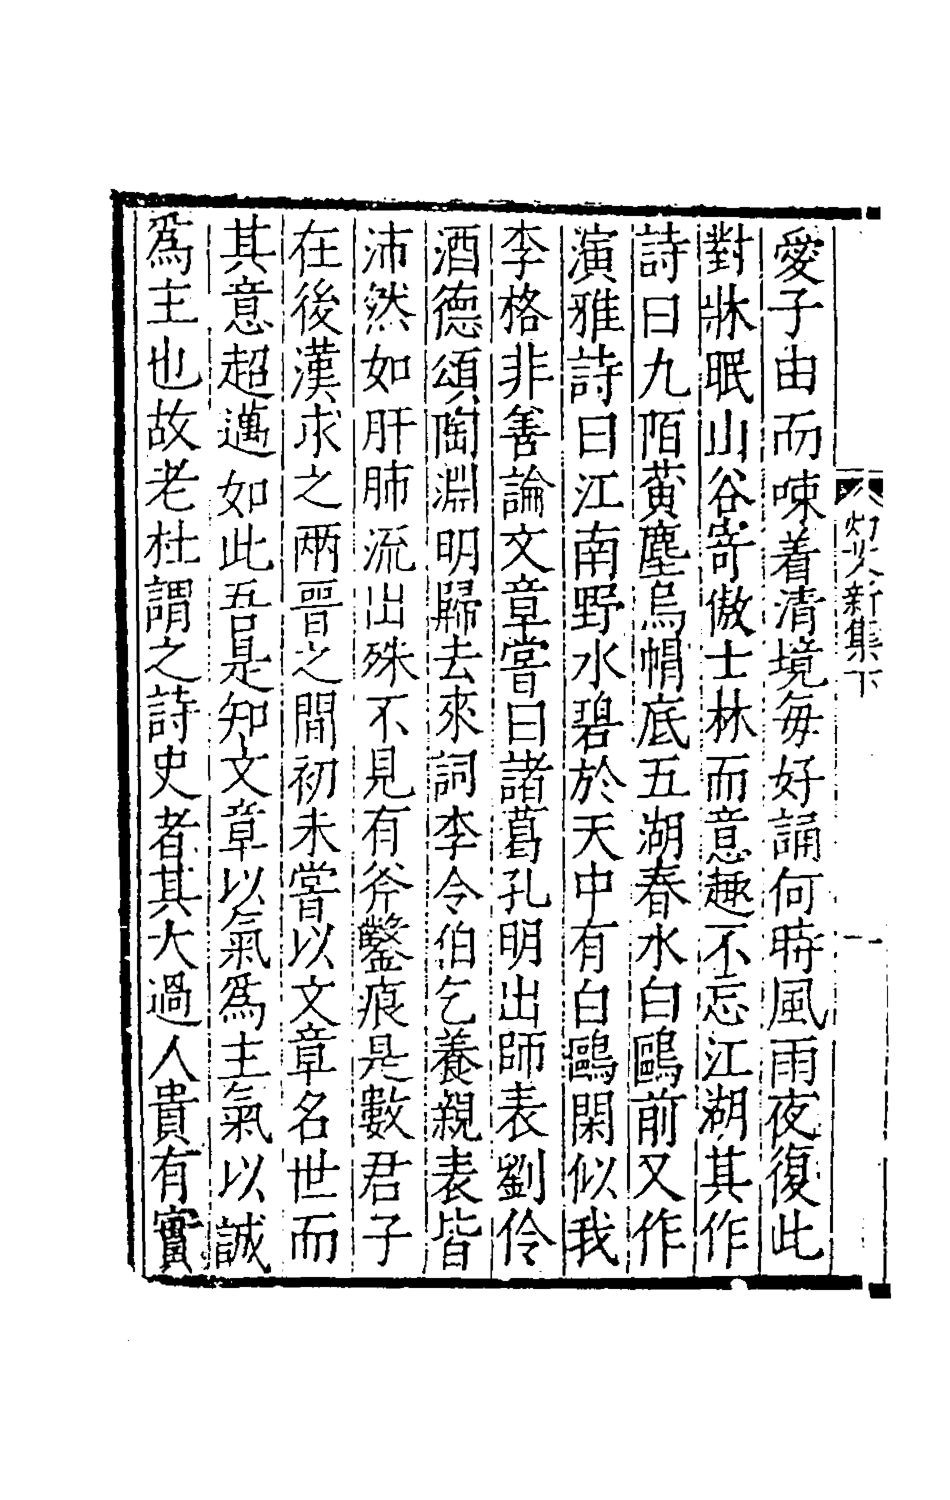 灼火新集下
一
愛子由而喚着清境每好誦何時風雨夜復此
對牀眠山谷寄傲士林而意趣不忘江湖其作
詩曰九陌黃塵烏帽底五湖春水白鷗前又作
演雅詩曰江南野水碧於天中有白鷗閑似我
李格非善論文章嘗曰諸葛孔明出師表劉伶
酒德頌陶淵明歸去來詞李令伯乞養親表皆
沛然如肝肺流出殊不見有斧鑿痕是數君子
在後漢求之兩晉之間初未嘗以文章名世而
其意超邁如此吾是知文章以氣爲主氣以誠
爲主也故老杜謂之詩史者其大過人貴有實